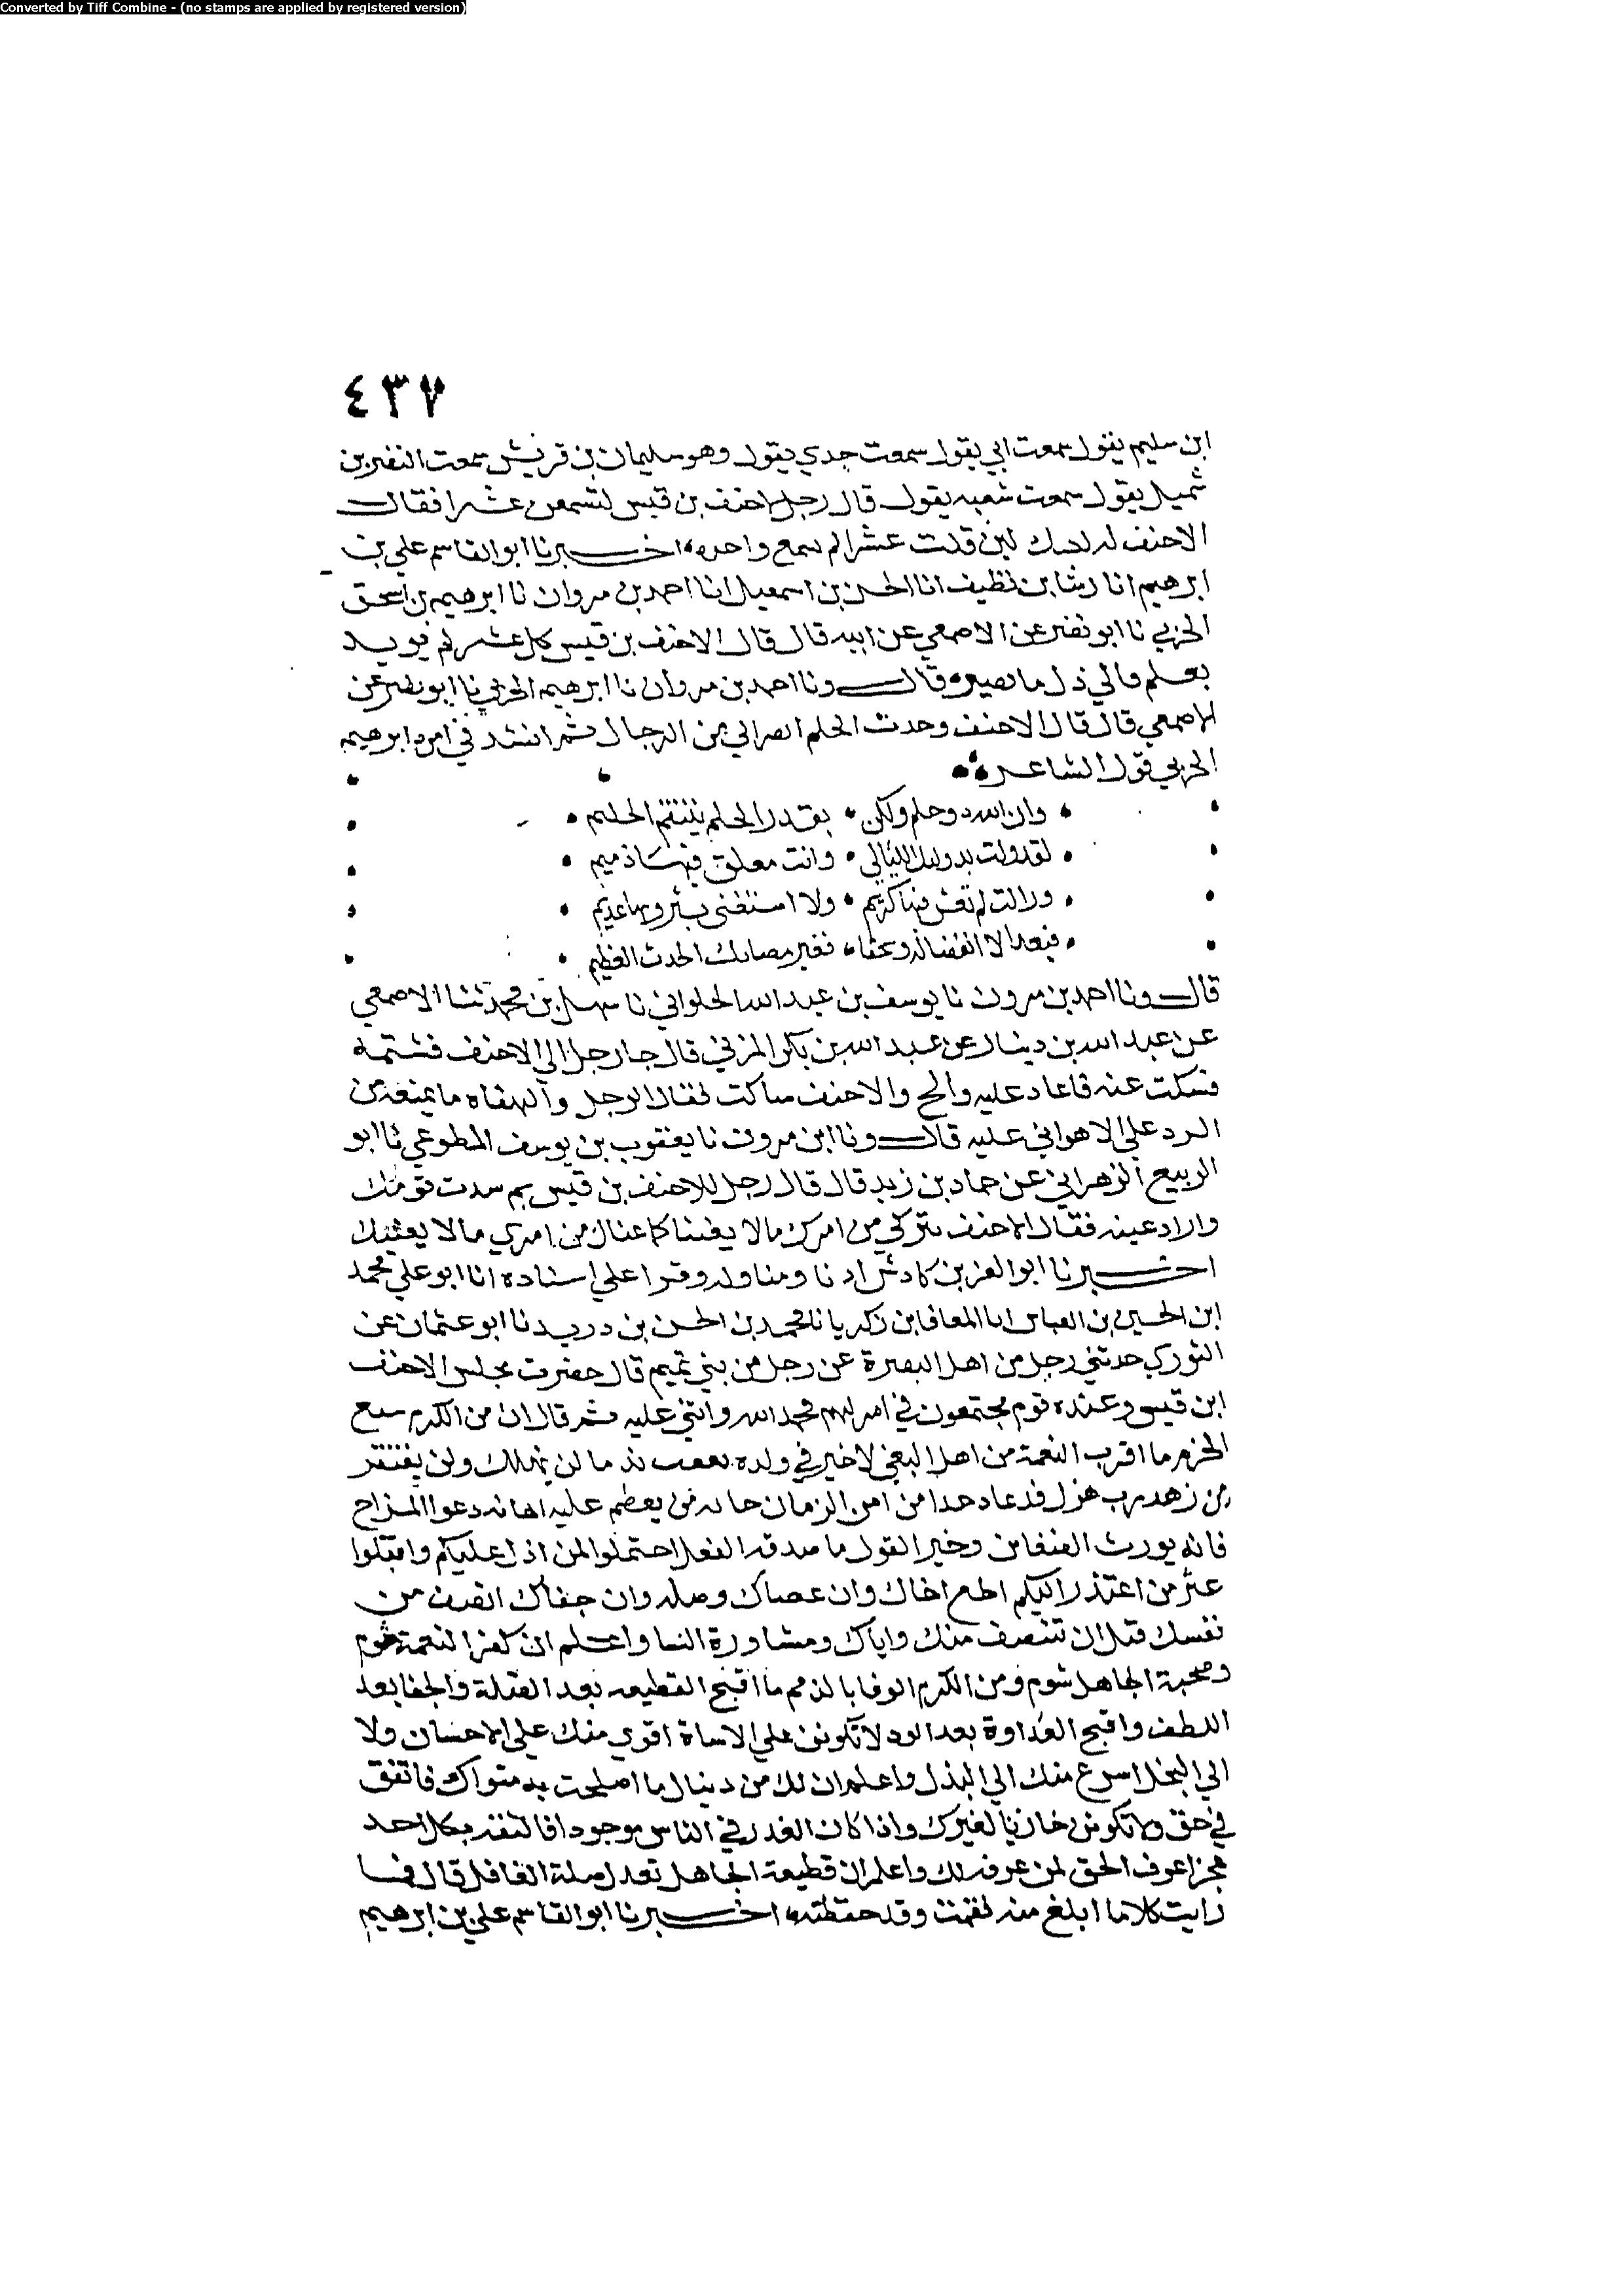 Converted by Tiff Combine - (no stamps are applied by registered version)
٤٣٧
ابن سليم يقول سمعت ابي يقول سمعت جدي يقول وهو سليمان بن قريش سمعت النضر بن
شميل يقول سمعت شعبه يقول قال رجل لاحنف بن قيس لتسمعن عشرا فقال
الاحنف له لعلك لين قلت عشرا لم تسمع واحده اخبرنا ابو القاسم علي بن
ابرهيم انا رشا بن نظيف انا الحسن بن اسمعيل انا احمد بن مروان نا ابرهيم بن اسحق
الحربي نا ابو نصر عن الاصمعي عن ابيه قال قال الاحنف بن قيس كل عز لم يويد
بعلم فالي ذل ما يصير وقال ونا احمد بن مروان نا ابرهيم الحربي نا ابو نصر عن
الاصمعي قال قال الاحنف وجدت الحلم انصر لي من الرجال ثم انشد في اثره ابرهيم
الحربي قول الشاعر
وان الله ذو حلم ولكن بقدر الحلم ينتقم الحليم
لقد ولت بدولتك الليالي وانت معلق فيها ذميم
وزالت لم يعش فيها كريم ولا استغنى بثروتها عديم
فبعدا لا انقضا له وسحقا فغير مصابك الحدث العظيم
قال ونا احمد بن مروان نا يوسف بن عبد الله الحلواني نا سهل بن محمد ثنا الاصمعي
عن عبد الله بن دينار عن عبد الله بن بكر المزني قال جا رجل الي الاحنف فشتمه
فسكت عنه فاعاد عليه والح والاحنف ساكت فقال الرجل والهفاه ما يمنعه من
الرد علي الا هواني عليه قال ونا ابن مروان نا يعقوب بن يوسف المطوعي نا ابو
الربيع الزهراني عن حماد بن زيد قال قال رجل للاحنف بن قيس بم سدت قومك
واراد عيبه فقال الاحنف بتركي من امرك مالا يعنينا كما عناك من امري مالا يعنيك
اخبرنا ابو العز بن كادش اذنا ومناوله وقرا علي اسناده انا ابو علي محمد
ابن الحسين بن العباس انا المعافا بن زكريا نا محمد بن الحسن بن دريد نا ابو عثمان عن
الثوري حدثني رجل من اهل البصرة عن رجل من بني تميم قال حضرت مجلس الاحنف
ابن قيس وعنده قوم مجتمعون في امر لهم فحمد الله واثني عليه ثم قال ان من الكرم منع
الحزم ما اقرب النعمة من اهل البغي لاخير في لذه تعقب ندما لن يهلك ولن يفتقر
من زهد رب هزل قد عاد جدا من امن الزمان خانه من يعظم عليه اهانه دعوا المزاح
فانه يورث الضغاين وخير القول ما صدقه الفعل احتملوا لمن اذل عليكم واقبلوا
عذر من اعتذر اليكم اطع اخاك وان عصاك وصله وان جفاك انصف من
نفسك قبل ان تنتصف منك واياك ومشاورة النسا واعلم ان كفر النعمة لوم
وصحبة الجاهل شوم ومن الكرم الوفا بالذمم ما اقبح القطيعه بعد الصلة والجفا بعد
اللطف واقبح العداوة بعد الود لا تكونن علي الاساة اقوي منك علي الاحسان ولا
الي البخل اسرع منك الي البذل واعلم ان لك من دنياك ما اصلحت به مثواك فانفق
في حق ولا تكونن خازنا لغيرك واذا كان الغدر في الناس موجودا فالثقه بكل احد
عجز اعرف الحق لمن عرفه لك واعلم ان قطيعة الجاهل تعدل صلة العاقل قال فما
رايت كلاما ابلغ منه فقمت وقد حفظته اخبرنا ابو القاسم علي بن ابرهيم